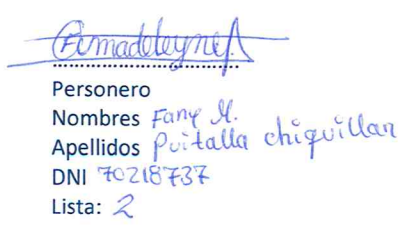 Personero
Nombres Fany M.
Apellidos Puitalla chiquillan
DNI 70218737
Lista: 2